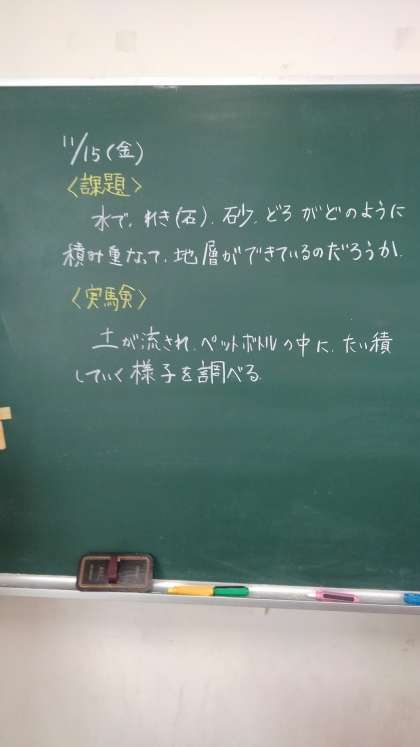 11/15(金)
〈課題〉
水で、れき(石)、砂、どろがどのように
積み重なって、地層ができているのだろうか。
〈実験〉
土が流され、ペットボトルの中に、たい積
していく様子を調べる。